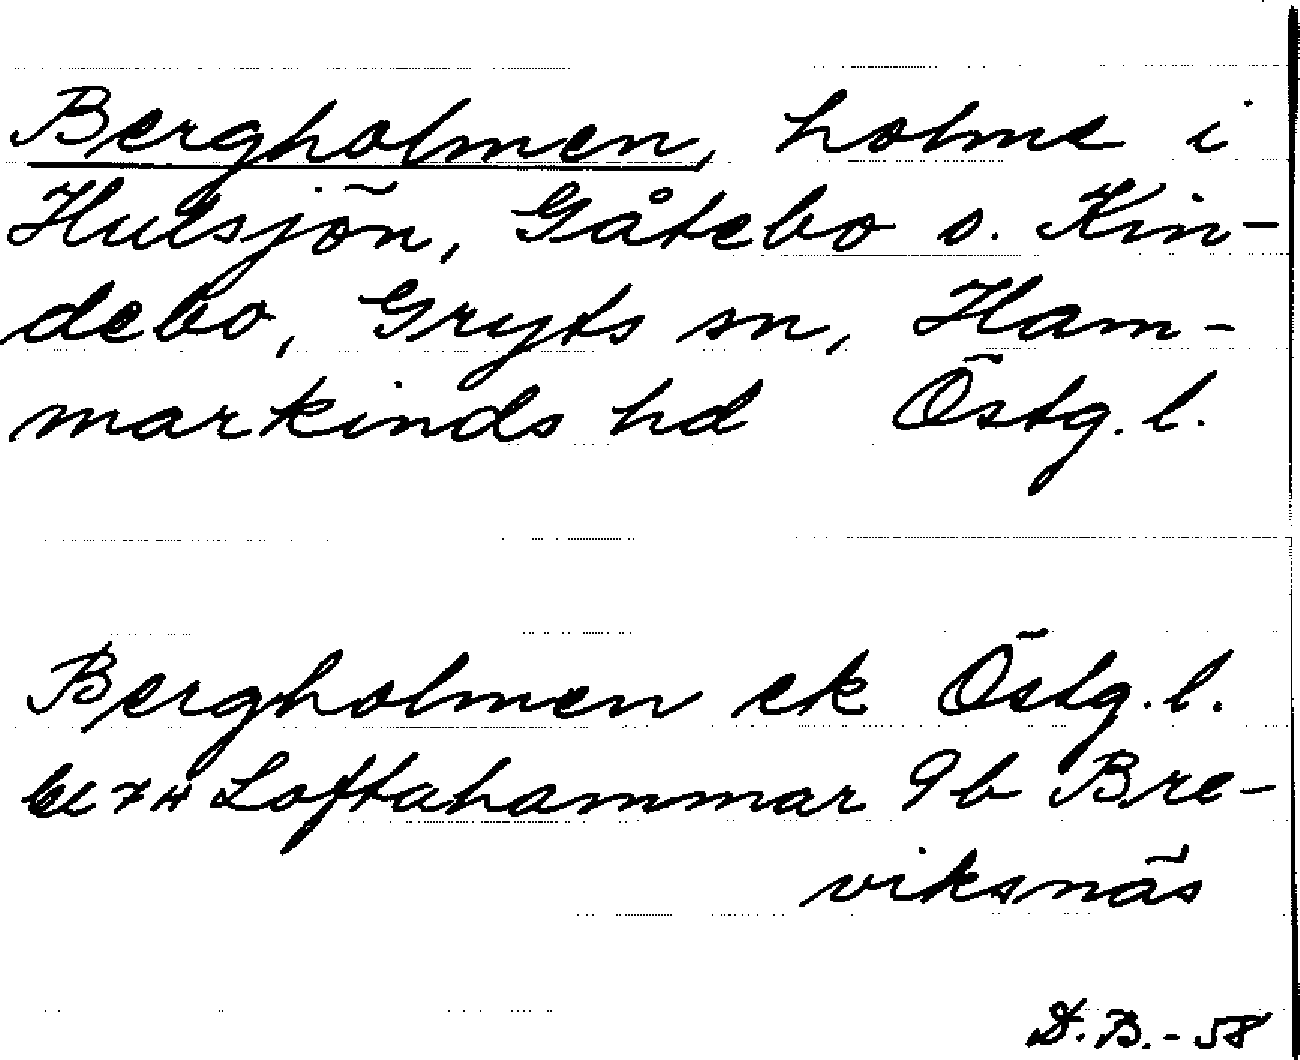 Bergholmen, holme i
Hulsjön, Gåtebo o. Kin-
debo, Gryts sn, Ham-
markinds hd Östg. l.
Bergholmen ek Östg. l.
Loftahammar 9b Bre-
viksnäs
D.B.-58